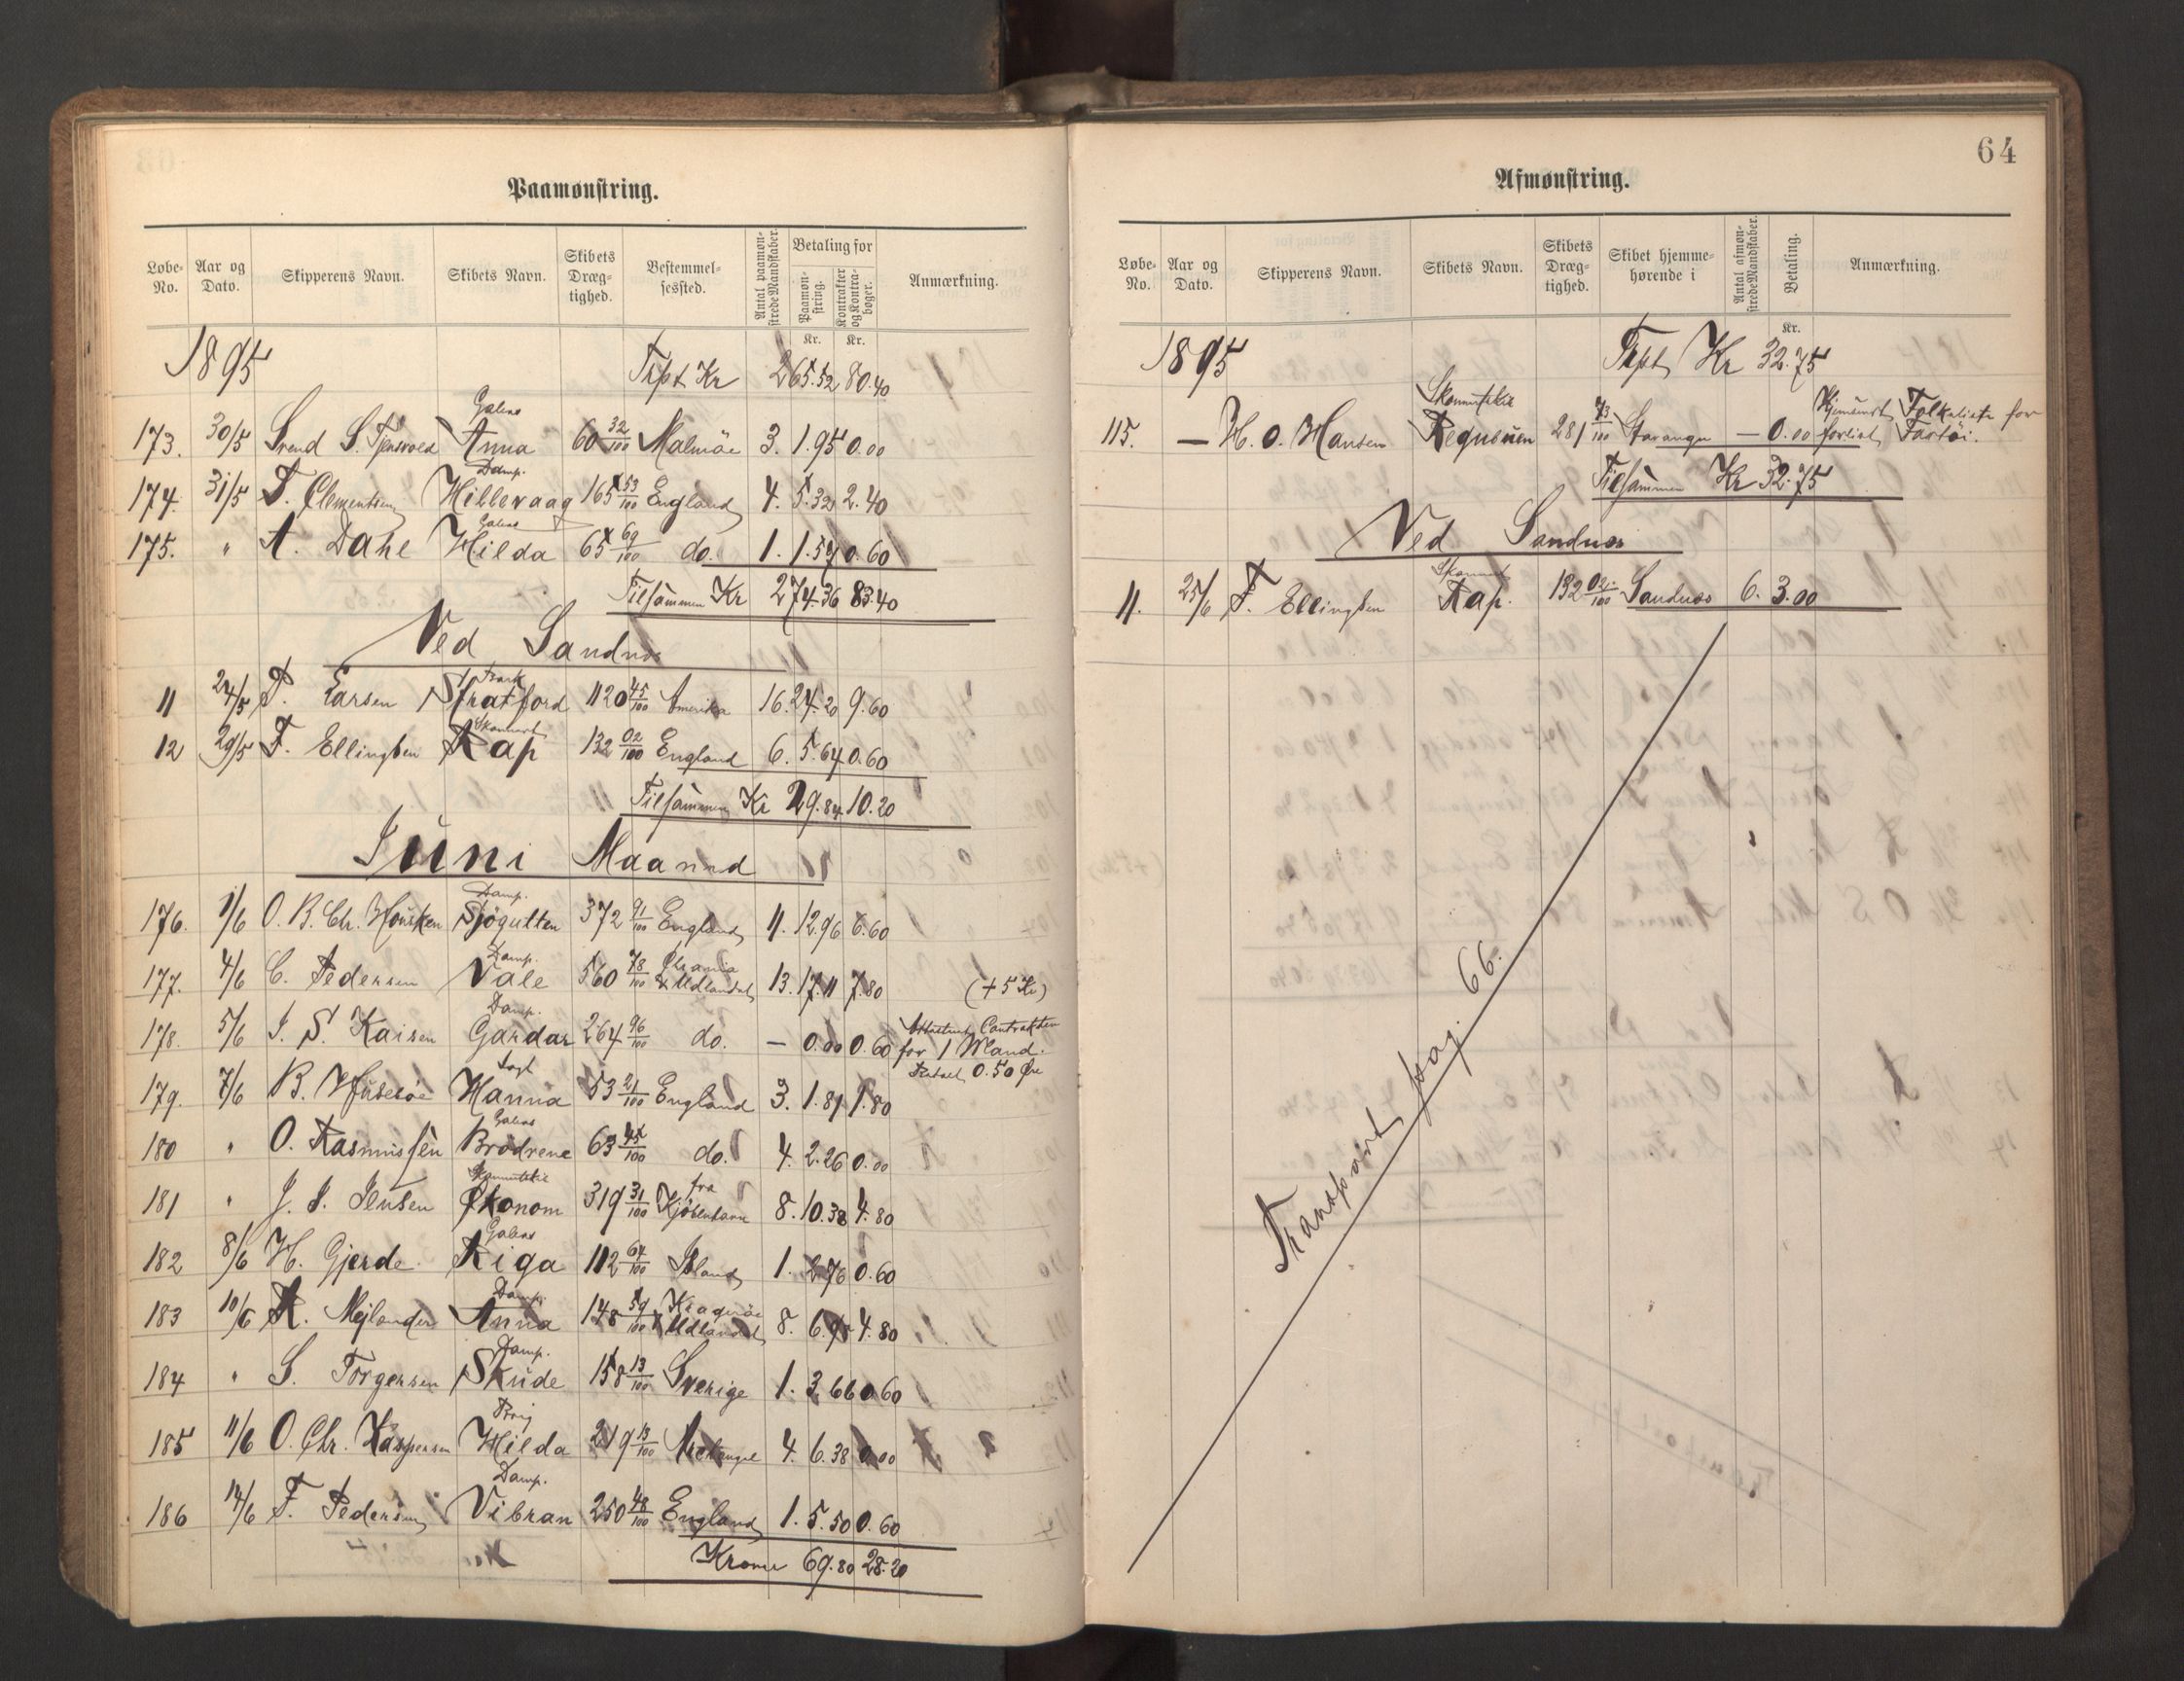 Paamønstring.
Løbe-No. Aar og Dato. Skipperens Navn. Skibets Navn. Skibets Dræg-tighed. Bestemmel-sessted. Antal paamøn-strede Mandskaber. Betaling for Paamøn-string. Kontrakter og Kontra-bøger. Anmærkning.
Kr. Kr.
1895 Trpt Kr 265.52 80.40
173. 30/5 Svend S. Galeas Anna 60 32/100 Malmöe 3. 1.95 0.00
174. 31/5 T. Clementsen Damp. Hillevaag 165 53/100 England 4. 5.32 2.40
175. " A. Dahl Galeas Hilda 65 69/100 do. 1. 1.57 0.60
Tilsammen Kr 274.36 83.40
Ved Sandnes
11 24/5 T. Larsen Bark Stratford 1120 45/100 Amerika 16. 24.20 9.60
12 29/5 F. Ellingsen Skonnert Rap 132 02/100 England 6. 5.64 0.60
Tilsammen Kr 29.84 10.20
Juni Maaned
176. 1/6 O. B. Chr. Housken Damp. Sjögutten 372 91/100 England 11. 12.96 6.60
177. 4/6 C. Pedersen Damp. Vale 560 78/100 Chrania & Udlandet 13. 17.11 7.80 (+5 Kr)
178. 5/6 J. S. Kaisen Damp. Gardar 264 96/100 do. – 0.00 0.60 Contrakten for 1 Mand. 0.50 Øre
179. 7/6 B. Husebøe Jagt Hanna 53 21/100 England 3. 1.81 1.80
180 " O. Rasmussen Galeas Brødrene 63 45/100 do. 4. 2.26 0.00
181 " J. J. Jensen Skonnertskib Økonom 319 31/100 fra Kjöbenhavn 8. 10.38 4.80
182 8/6 H. Gjerde Galeas Riga 112 64/100 Island 1. 2.76 0.60
183 10/6 R. Mejlænder Damp. Anna 148 59/100 Kragerøe & Udlandet 8. 6.95 4.80
184 " S. Torgersen Damp. Skude 158 13/100 Sverige 1. 3.66 0.60
185 11/6 O. Chr. Kaspersen Brig Hilda 219 13/100 Archangel 4. 6.38 0.00
186 14/6 F. Pedersen Damp. Vibran 250 48/100 England 1. 5.50 0.60
Kroner 69.80 28.20
64
Afmønstring.
Løbe-No. Aar og Dato. Skipperens Navn. Skibets Navn. Skibets Dræg-tighed. Skibet hjemme-hørende i Antal afmøn-strede Mandskaber. Betaling. Anmærkning.
Kr.
1895 Trpt Kr 32.75
115. – H. O. Hansen Skonnertskib Requeuen 281 73/100 Stavanger – 0.00 Hjemsendt Folkeliste for forlist Fartöi.
Tilsammen Kr 32.75
Ved Sandnes
11. 25/6 F. Ellingsen Skonnert Rap. 132 02/100 Sandnes 6. 3.00
Transport pag. 66.